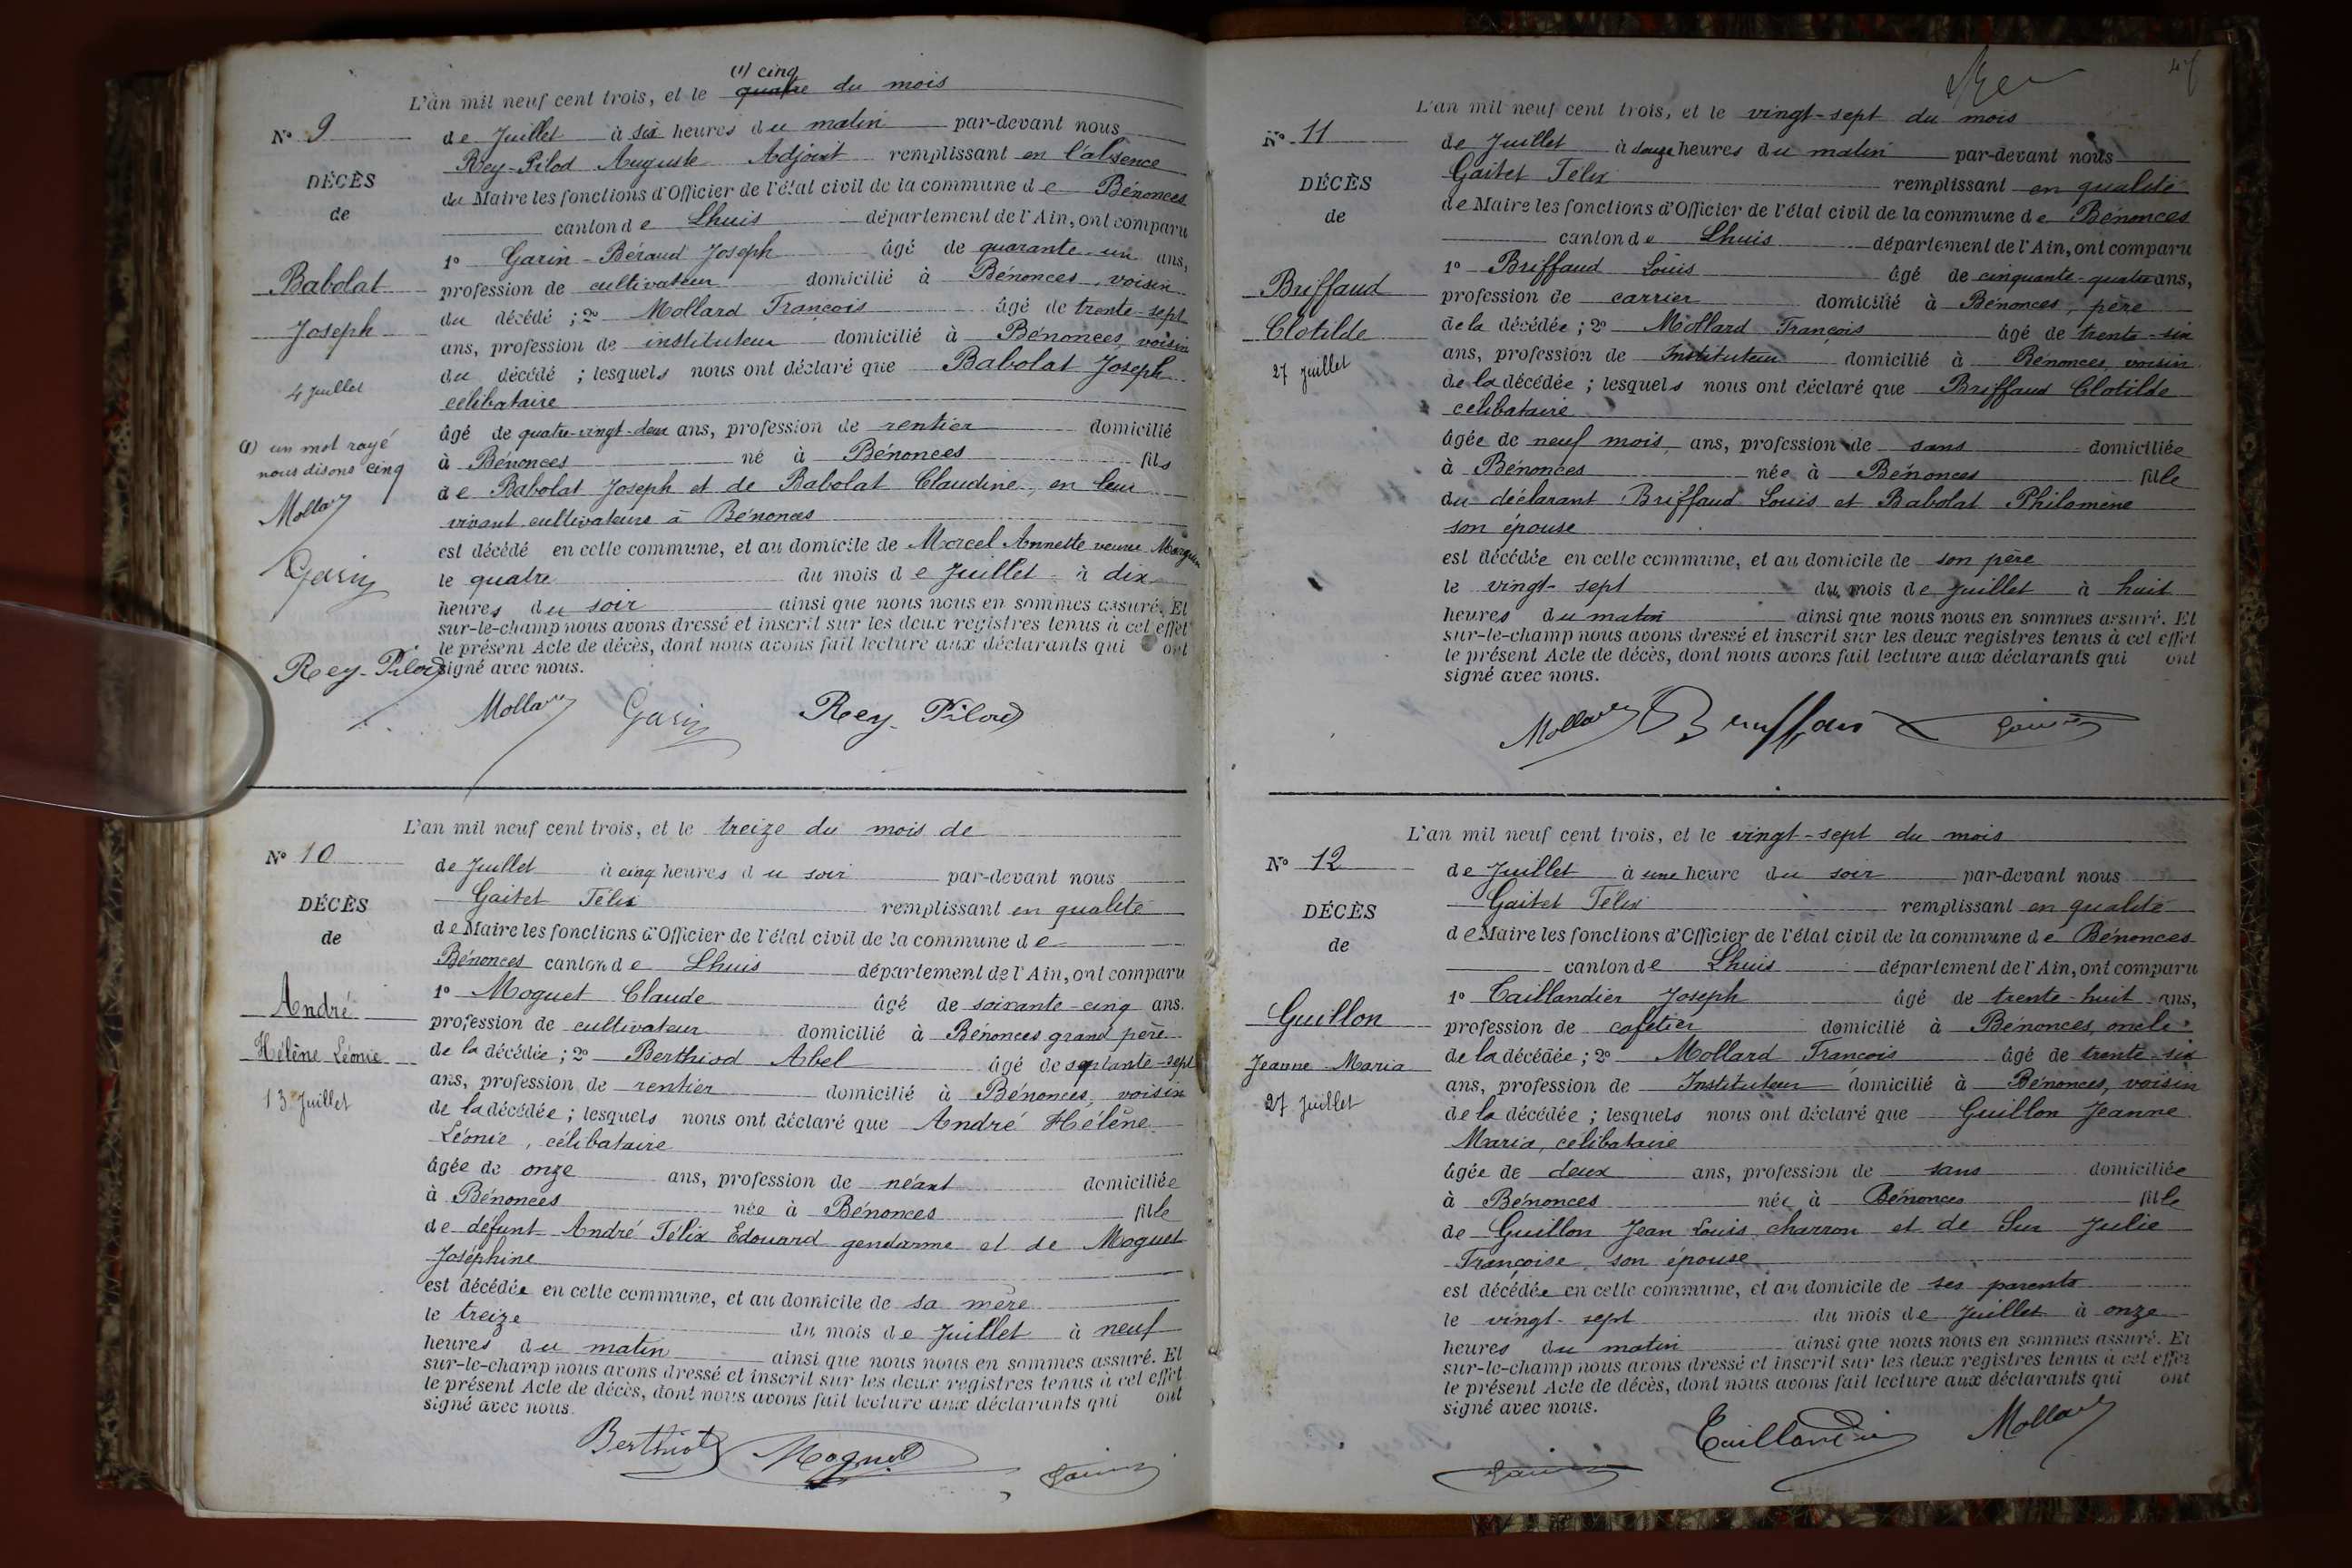 (1) cinq
L'an mil neuf cent trois, et le quatre du mois
N° 9
de Juillet à six heures du matin par-devant nous
Rey-Pilod Auguste Adjoint remplissant en l'absence
DÉCÈS
du Maire les fonctions d'Officier de l'état civil de la commune de Bénonces
de
canton de Lhuis département de l'Ain, ont comparu
1° Garin-Béraud Joseph âgé de quarante-un ans,
Babolat
profession de cultivateur domicilié à Bénonces, voisin
du décédé ; 2° Mollard François âgé de trente-sept
Joseph
ans, profession de instituteur domicilié à Bénonces, voisin
du décédé ; lesquels nous ont déclaré que Babolat Joseph
4 Juillet
celibataire
âgé de quatre-vingt-deux ans, profession de rentier domicilié
(1) un mot rayé
nous disons cinq
à Bénonces né à Bénonces fils
de Babolat Joseph et de Babolat Claudine, en leur
Mollard
vivant cultivateurs à Bénonces
est décédé en cette commune, et au domicile de Morcel Annette veuve
Garin
le quatre du mois de Juillet à dix
heures du soir ainsi que nous nous en sommes assuré. Et
sur-le-champ nous avons dressé et inscrit sur les deux registres tenus à cet effet
le présent Acte de décès, dont nous avons fait lecture aux déclarants qui ont
Rey-Pilod
signé avec nous.
Mollard Garin Rey-Pilod
L'an mil neuf cent trois, et le treize du mois de
N° 10
de Juillet à cinq heures du soir par-devant nous
Gaitet Félix remplissant en qualité
DÉCÈS
de Maire les fonctions d'Officier de l'état civil de la commune de
de
Bénonces canton de Lhuis département de l'Ain, ont comparu
1° Moguet Claude âgé de soixante-cinq ans.
André
profession de cultivateur domicilié à Bénonces grand père
Hélène Léonie
de la décédée ; 2° Berthiod Abel âgé de septante-sept
ans, profession de rentier domicilié à Bénonces, voisin
13 Juillet
de la décédée ; lesquels nous ont déclaré que André Hélène
Léonie, célibataire
âgée de onze ans, profession de néant domiciliée
à Bénonces née à Bénonces fille
de défunt André Félix Edouard gendarme et de Moguet
Joséphine
est décédée en cette commune, et au domicile de sa mère
le treize du mois de Juillet à neuf
heures du matin ainsi que nous nous en sommes assuré. Et
sur-le-champ nous avons dressé et inscrit sur les deux registres tenus à cet effet
le présent Acte de décès, dont nous avons fait lecture aux déclarants qui ont
signé avec nous.
Berthiod Moguet Gaitet
L'an mil neuf cent trois, et le vingt-sept du mois
N° 11
de Juillet à douze heures du matin par-devant nous
Gaitet Félix remplissant en qualité
DÉCÈS
de Maire les fonctions d'Officier de l'état civil de la commune de Bénonces
de
canton de Lhuis département de l'Ain, ont comparu
1° Briffaud Louis âgé de cinquante-quatre ans,
Briffaud
profession de carrier domicilié à Bénonces, père
Clotilde
de la décédée ; 2° Mollard François âgé de trente-six
ans, profession de Instituteur domicilié à Bénonces, voisin
27 Juillet
de la décédée ; lesquels nous ont déclaré que Briffaud Clotilde
celibataire
âgée de neuf mois, ans, profession de sans domiciliée
à Bénonces née à Bénonces fille
du déclarant Briffaud Louis et Babolat Philomène
son épouse
est décédée en cette commune, et au domicile de son père
le vingt-sept du mois de Juillet à huit
heures du matin ainsi que nous nous en sommes assuré. Et
sur-le-champ nous avons dressé et inscrit sur les deux registres tenus à cet effet
le présent Acte de décès, dont nous avons fait lecture aux déclarants qui ont
signé avec nous.
Mollard Briffaud Gaitet
L'an mil neuf cent trois, et le vingt-sept du mois
N° 12
de Juillet à une heure du soir par-devant nous
Gaitet Félix remplissant en qualité
DÉCÈS
de Maire les fonctions d'Officier de l'état civil de la commune de Bénonces
de
canton de Lhuis département de l'Ain, ont comparu
1° Taillandier Joseph âgé de trente-huit ans,
Guillon
profession de cafetier domicilié à Bénonces, oncle
Jeanne Maria
de la décédée ; 2° Mollard François âgé de trente-six
ans, profession de Instituteur domicilié à Bénonces, voisin
27 Juillet
de la décédée ; lesquels nous ont déclaré que Guillon Jeanne
Maria, celibataire
âgée de deux ans, profession de sans domiciliée
à Bénonces née à Bénonces fille
de Guillon Jean Louis, charron et de Sur Julie
Françoise, son épouse
est décédée en cette commune, et au domicile de ses parents
le vingt-sept du mois de Juillet à onze
heures du matin ainsi que nous nous en sommes assuré. Et
sur-le-champ nous avons dressé et inscrit sur les deux registres tenus à cet effet
le présent Acte de décès, dont nous avons fait lecture aux déclarants qui ont
signé avec nous.
Gaitet Taillandier Mollard